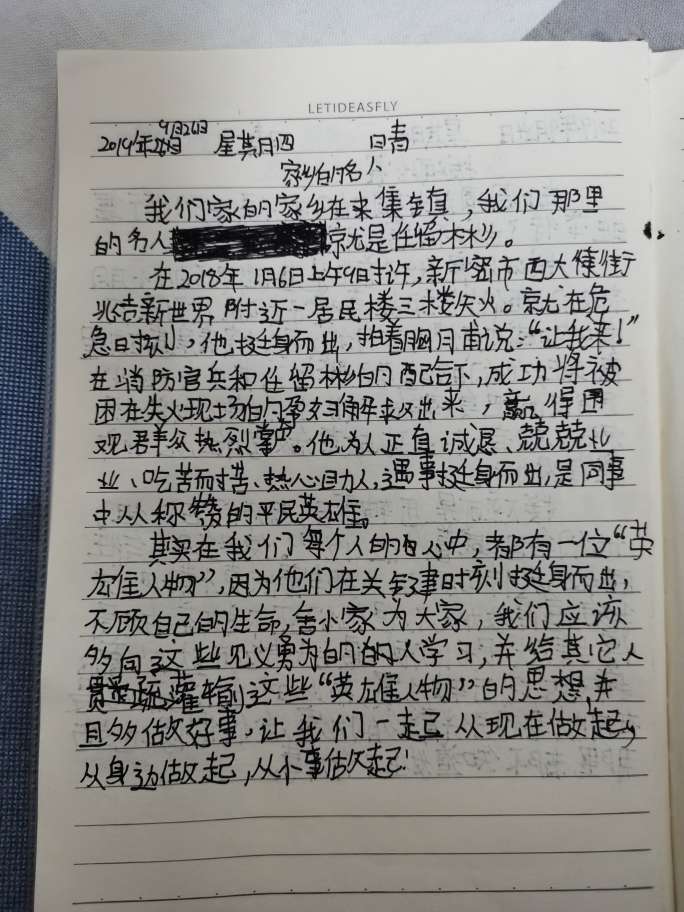 LETIDEASFLY
9月26日
2019年 星期四 日青
家乡的名人
我们家的家乡在来集镇，我们那里
的名人 就是任留彬。
在2018年1月6日上午9时许，新密市西大街
北店新世界附近一居民楼三楼失火。就在危
急时刻，他挺身而出，拍着胸甫说：“让我来！”
在消防官兵和任留彬的配合下，成功将被
困在失火现场的孕妇解救出来，赢得围
观群众热烈掌声。他为人正直诚恳、兢兢业
业、吃苦耐苦、热心助人，遇事挺身而出，是同事
中人人称赞的平民英雄。
其实在我们每个人的心中，都有一位“英
雄人物”，因为他们在关键时刻挺身而出，
不顾自己的生命，舍小家为大家，我们应该
多向这些见义勇为的的人学习，并给其它人
灌输这些“英雄人物”的思想，并
且多做好事，让我们一起从现在做起，
从身边做起，从小事做起！